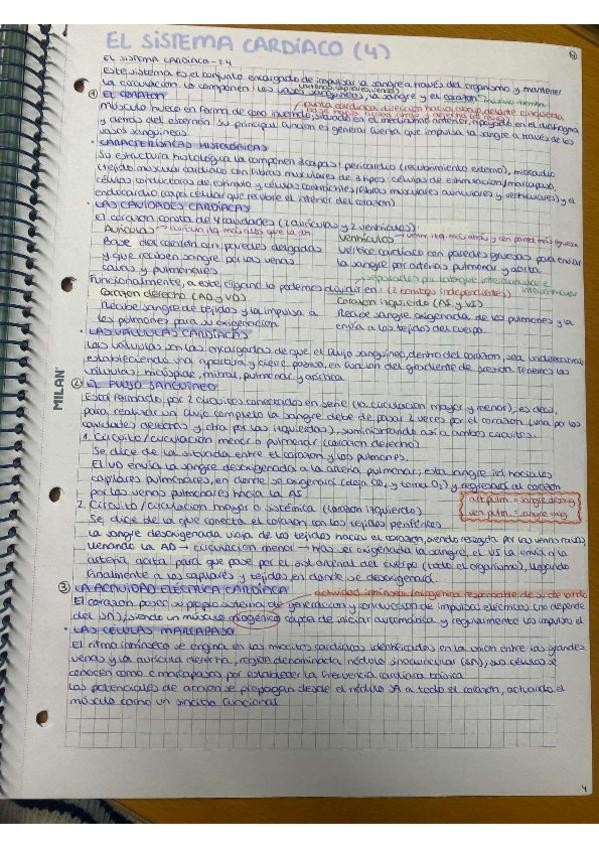 EL SISTEMA CARDÍACO (4)
EL SISTEMA CARDÍACO - T.4
Este sistema es el conjunto encargado de impulsar la sangre a través del organismo y mantener
la circulación. Lo componen: los vasos sanguíneos, la sangre y el corazón
① EL CORAZÓN
punta cardíaca dirección hacia abajo, delante e izquierda
músculo hueco en forma de cono invertido, situado en el mediastino anterior, apoyado en el diafragma
y detrás del esternón. Su principal función es generar fuerza que impulsa la sangre a través de los
vasos sanguíneos.
· CARACTERÍSTICAS HISTOLÓGICAS
Su estructura histológica la componen 3 capas: pericardio (recubrimiento externo), miocardio
(tejido muscular cardíaco con fibras musculares de 3 tipos: células de estimulación/marcapaso,
células conductoras del estímulo y células contráctiles (fibras musculares auriculares y ventriculares) y el
endocardio (capa celular que recubre el interior del corazón)
· LAS CAVIDADES CARDÍACAS
El corazón consta de 4 cavidades (2 aurículas y 2 ventrículos)
Aurículas
Base del corazón con paredes delgadas
y que reciben sangre por las venas
cavas y pulmonares
Ventrículos
Vértice cardíaco con paredes gruesas para enviar
la sangre por arterias pulmonar y aorta.
separados por tabique interauricular e interventricular
Funcionalmente, a este órgano lo podemos dividir en: (2 bombas independientes)
Corazón derecho (AD y VD)
Recibe sangre de tejidos y la impulsa a
los pulmones para su oxigenación
Corazón izquierdo (AS y VS)
Recibe sangre oxigenada de los pulmones y la
envía a los tejidos del cuerpo.
· LAS VÁLVULAS CARDÍACAS
Las válvulas son las encargadas de que el flujo sanguíneo, dentro del corazón, sea unidireccional
estableciendo una apertura y cierre pasivo, en función del gradiente de presión. Tenemos las
válvulas: tricúspide, mitral, pulmonar y aórtica.
② EL FLUJO SANGUÍNEO
Está formado por 2 circuitos conectados en serie (la circulación mayor y menor), es decir,
para realizar un flujo completo la sangre debe de pasar 2 veces por el corazón (una por las
cavidades derechas y otra por las izquierdas), suministrando así a ambos circuitos.
1. Circuito/circulación menor o pulmonar (corazón derecho)
Se dice de la situada entre el corazón y los pulmones.
El VD envía la sangre desoxigenada a la arteria pulmonar, esta sangre irá hacia los
capilares pulmonares, en donde se oxigenará (deja CO₂ y toma O₂) y regresará al corazón
por las venas pulmonares hacia la AS.
art. pulm. = sangre desoxig
ven. pulm. = sangre oxig
2. Circuito/circulación mayor o sistémica (corazón izquierdo)
Se dice de la que conecta el corazón con los tejidos periféricos
La sangre desoxigenada viaja de los tejidos hacia el corazón, siendo recogida por las venas cavas,
llenando la AD → circulación menor → tras ser oxigenada la sangre, el VS la envía a la
arteria aorta para que pase por el árbol arterial del cuerpo (todo el organismo), llegando
finalmente a los capilares y tejidos, en donde se desoxigenará.
③ LA ACTIVIDAD ELÉCTRICA CARDÍACA
actividad intrínseca/miogénica responsable de su latido
El corazón posee su propio sistema de generación y conducción de impulsos eléctricos (no depende
del SN), siendo un músculo miogénico capaz de iniciar automática y regularmente los impulsos el
· LAS CÉLULAS MARCAPASO
El ritmo intrínseco se origina en los miocitos cardíacos identificados en la unión entre las grandes
venas y la aurícula derecha, región denominada nódulo sinoauricular (SA), sus células se
conocen como c. marcapasos por establecer la frecuencia cardíaca básica
Las potenciales de acción se propagan desde el nódulo SA a todo el corazón, actuando el
músculo como un sincitio funcional.
MILAN
4